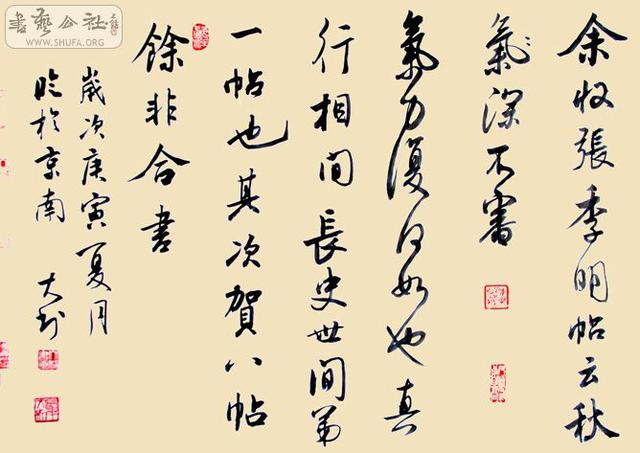 余收張季明帖云秋
氣深不審
氣力復何如也真
行相間長史世間第
一帖也其次賀八帖
餘非合書
歲次庚寅夏月
臨於京南
書藝公社
WWW.SHUFA.ORG